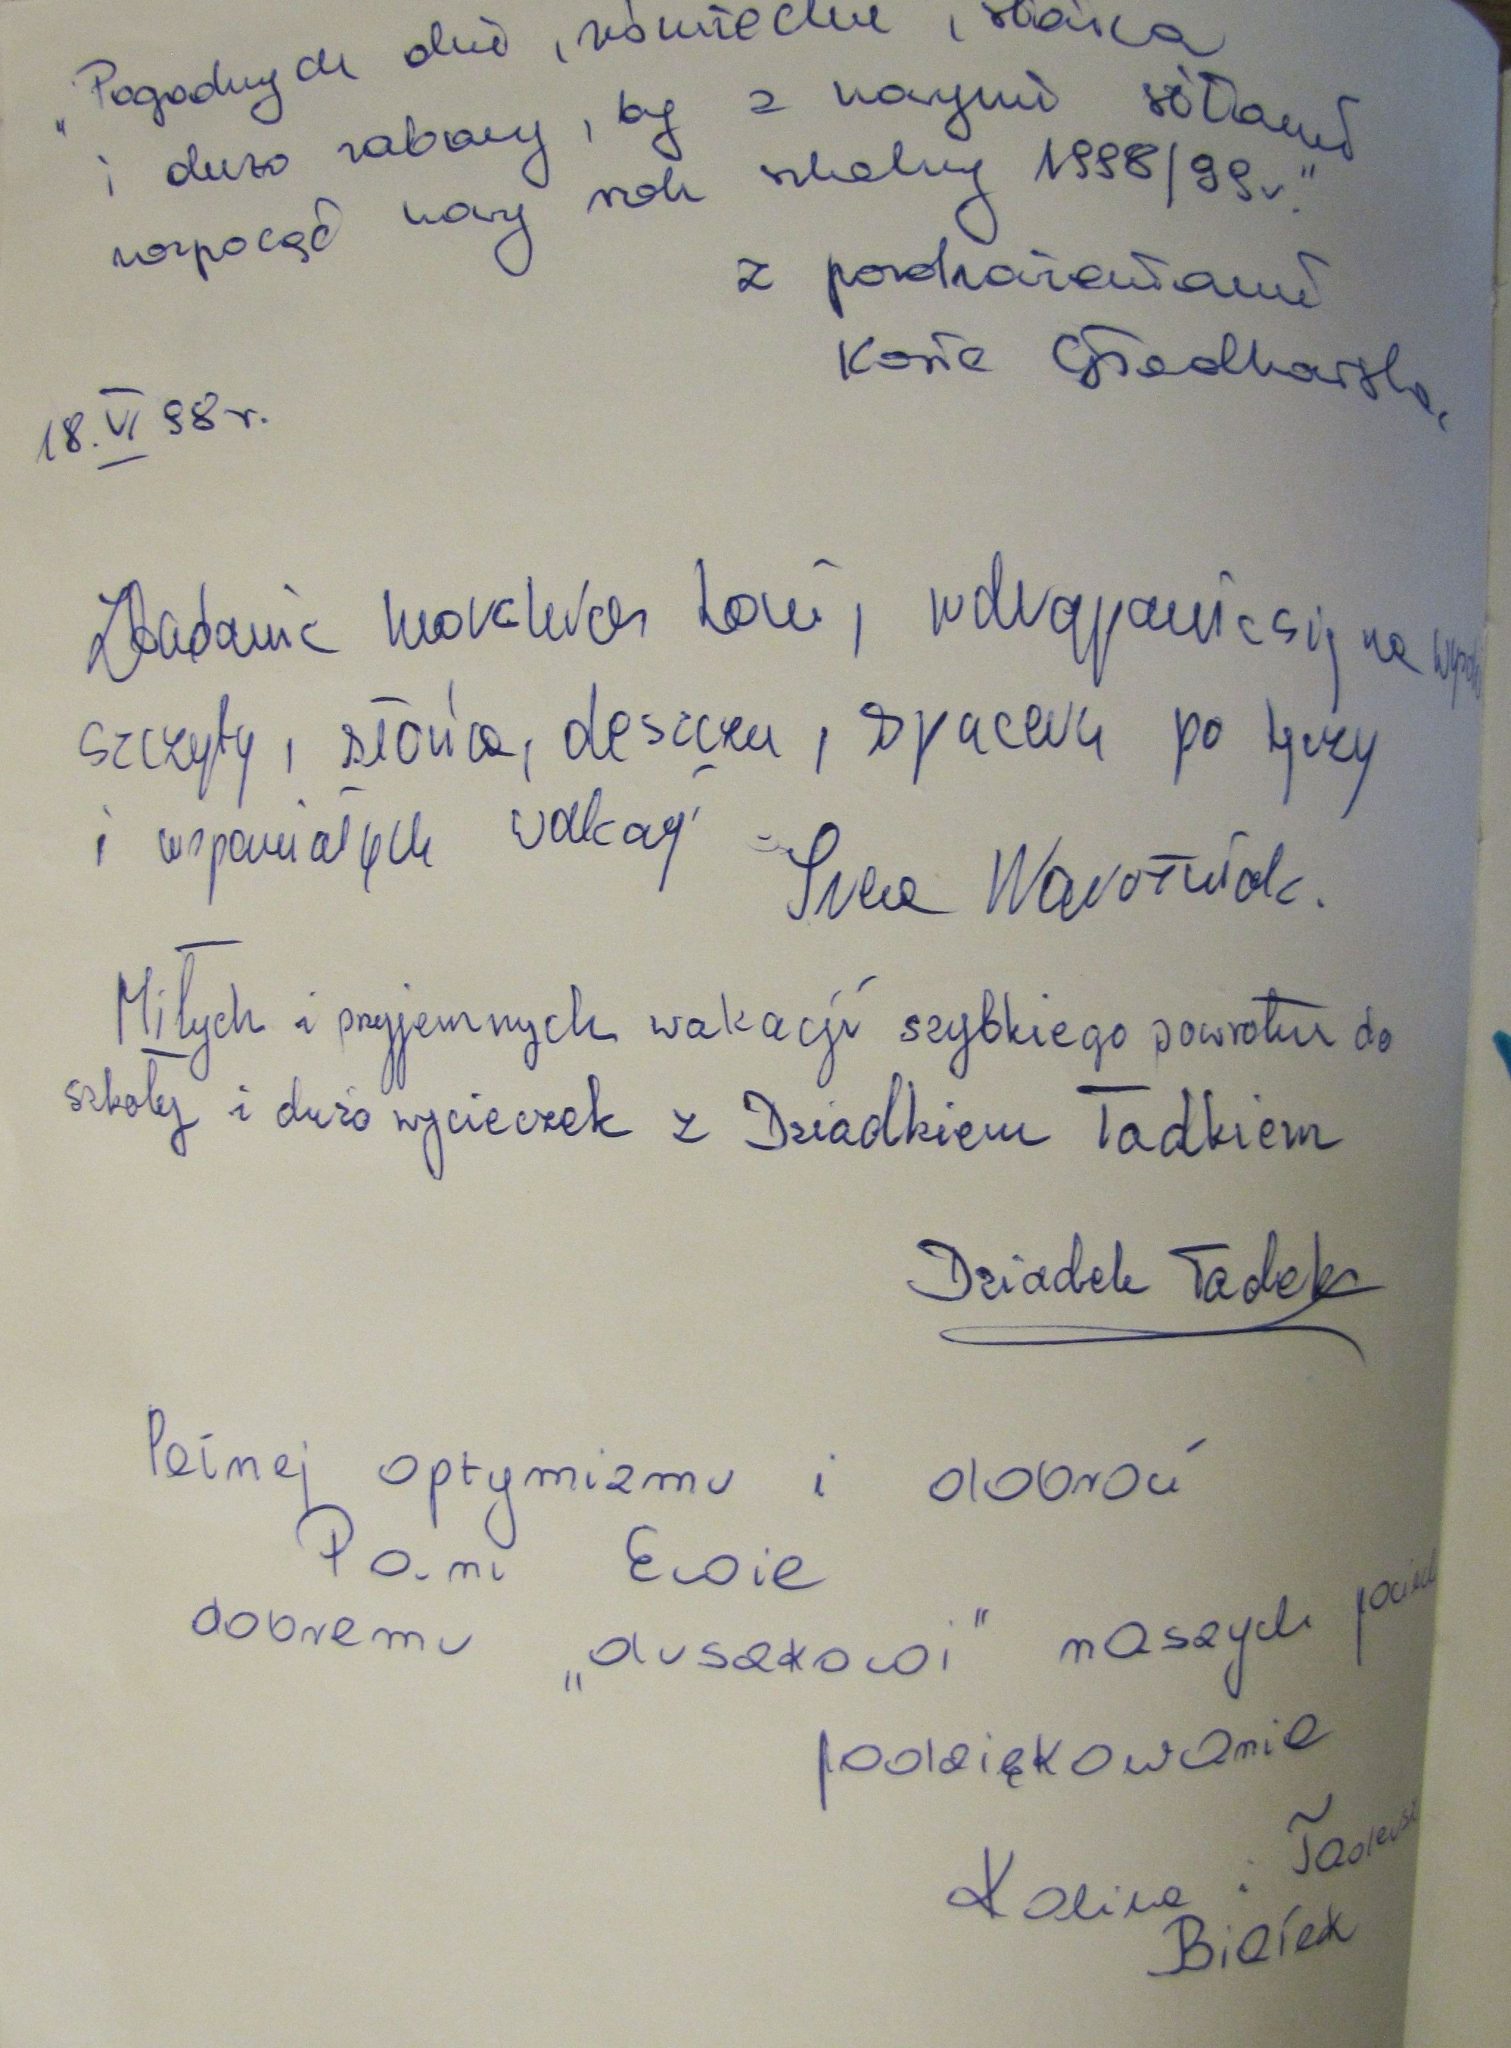 "Pogodnych dni, uśmiechu, słońca
i dużo zabawy, by z nowymi siłami
rozpocząć nowy rok szkolny 1998/99r."
z pozdrowieniami
18.VI 98r.
Zbadania morskiego, wdrapania się na
szczyty, słońca, deszczu, spaceru po tęczy
i wspaniałych wakacji
Miłych i przyjemnych wakacji szybkiego powrotu do
szkoły i dużo wycieczek z Dziadkiem Tadkiem
Dziadek Tadek
Pełnej optymizmu i dobroci
Pani Ewie
dobremu „duszkowi" naszych pociech
podziękowanie
Kalina i Tadeusz
Białek